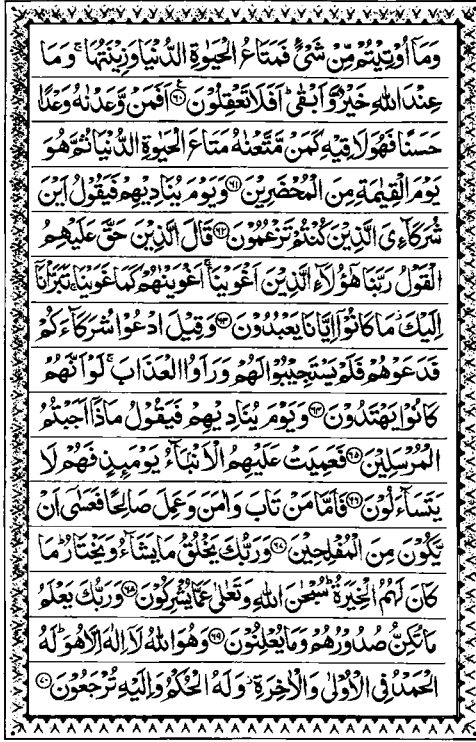 وَمَآ اُوْتِيْتُمْ مِّنْ شَىْءٍ فَمَتَاعُ الْحَيٰوةِ الدُّنْيَا وَزِيْنَتُهَا ۚ وَمَا
عِنْدَ اللّٰهِ خَيْرٌ وَّاَبْقٰى ؕ اَفَلَا تَعْقِلُوْنَ ﴿۶۰﴾ اَفَمَنْ وَّعَدْنٰهُ وَعْدًا
حَسَنًا فَهُوَ لَاقِيْهِ كَمَنْ مَّتَّعْنٰهُ مَتَاعَ الْحَيٰوةِ الدُّنْيَا ثُمَّ هُوَ
يَوْمَ الْقِيٰمَةِ مِنَ الْمُحْضَرِيْنَ ﴿۶۱﴾ وَيَوْمَ يُنَادِيْهِمْ فَيَقُوْلُ اَيْنَ
شُرَكَآءِىَ الَّذِيْنَ كُنْتُمْ تَزْعُمُوْنَ ﴿۶۲﴾ قَالَ الَّذِيْنَ حَقَّ عَلَيْهِمُ
الْقَوْلُ رَبَّنَا هٰٓؤُلَآءِ الَّذِيْنَ اَغْوَيْنَا ۚ اَغْوَيْنٰهُمْ كَمَا غَوَيْنَا ۚ تَبَرَّاْنَآ
اِلَيْكَ ۫ مَا كَانُوْٓا اِيَّانَا يَعْبُدُوْنَ ﴿۶۳﴾ وَقِيْلَ ادْعُوْا شُرَكَآءَكُمْ
فَدَعَوْهُمْ فَلَمْ يَسْتَجِيْبُوْا لَهُمْ وَرَاَوُا الْعَذَابَ ۚ لَوْ اَنَّهُمْ
كَانُوْا يَهْتَدُوْنَ ﴿۶۴﴾ وَيَوْمَ يُنَادِيْهِمْ فَيَقُوْلُ مَاذَآ اَجَبْتُمُ
الْمُرْسَلِيْنَ ﴿۶۵﴾ فَعَمِيَتْ عَلَيْهِمُ الْاَنْۢبَآءُ يَوْمَئِذٍ فَهُمْ لَا
يَتَسَآءَلُوْنَ ﴿۶۶﴾ فَاَمَّا مَنْ تَابَ وَاٰمَنَ وَعَمِلَ صَالِحًا فَعَسٰٓى اَنْ
يَّكُوْنَ مِنَ الْمُفْلِحِيْنَ ﴿۶۷﴾ وَرَبُّكَ يَخْلُقُ مَا يَشَآءُ وَيَخْتَارُ ؕ مَا
كَانَ لَهُمُ الْخِيَرَةُ ؕ سُبْحٰنَ اللّٰهِ وَتَعٰلٰى عَمَّا يُشْرِكُوْنَ ﴿۶۸﴾ وَرَبُّكَ يَعْلَمُ
مَا تُكِنُّ صُدُوْرُهُمْ وَمَا يُعْلِنُوْنَ ﴿۶۹﴾ وَهُوَ اللّٰهُ لَآ اِلٰهَ اِلَّا هُوَ ؕ لَهُ
الْحَمْدُ فِى الْاُوْلٰى وَالْاٰخِرَةِ ۫ وَلَهُ الْحُكْمُ وَاِلَيْهِ تُرْجَعُوْنَ ﴿۷۰﴾